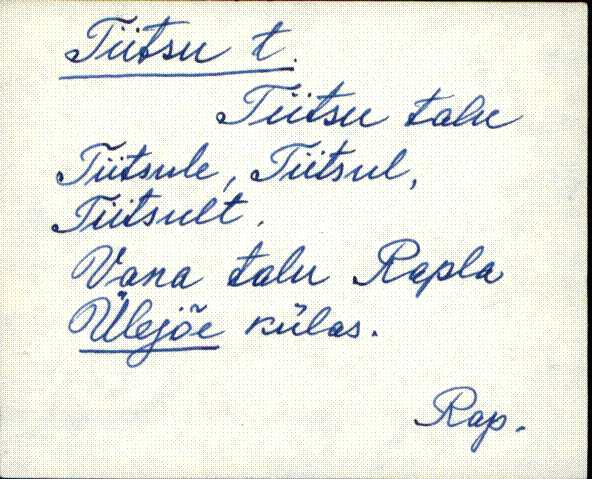 Tiitsu t.
Tiitsu talu
Tiitsule, Tiitsul,
Tiitsult.
Vana talu Rapla
Ülejõe külas.
Rap.